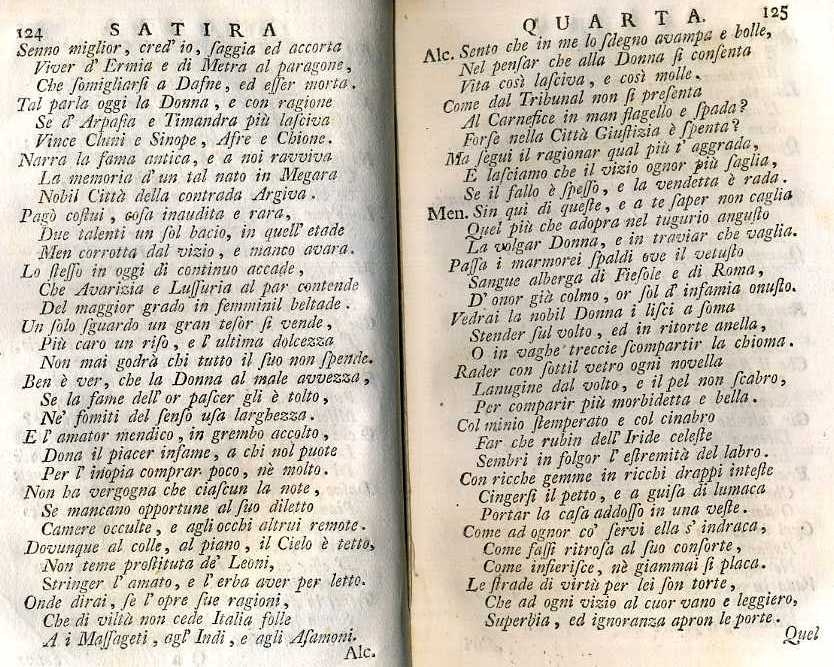 124 SATIRA
Senno miglior, cred' io, ſaggia ed accorta
Viver d' Ermia e di Metra al paragone,
Che ſomigliarſi a Dafne, ed eſſer morta.
Tal parla oggi la Donna, e con ragione
Se d' Arpaſia e Timandra più laſciva
Vince Cluni e Sinope, Afre e Chione.
Narra la fama antica, e a noi ravviva
La memoria d' un tal nato in Megara
Nobil Città della contrada Argiva.
Pagò coſtui, coſa inaudita e rara,
Due talenti un ſol bacio, in quell' etade
Men corrotta dal vizio, e manco avara.
Lo ſteſſo in oggi di continuo accade,
Che Avarizia e Luſſuria al par contende
Del maggior grado in femminil beltade.
Un ſolo ſguardo un gran teſor ſi vende,
Più caro un riſo, e l' ultima dolcezza
Non mai godrà chi tutto il ſuo non ſpende.
Ben è ver, che la Donna al male avvezza,
Se la fame dell' or paſcer gli è tolto,
Ne' fomiti del ſenſo uſa larghezza.
E l' amator mendico, in grembo accolto,
Dona il piacer infame, a chi nol puote
Per l' inopia comprar poco, nè molto.
Non ha vergogna che ciaſcun la note,
Se mancano opportune al ſuo diletto
Camere occulte, e agli occhi altrui remote.
Dovunque al colle, al piano, il Cielo è tetto,
Non teme proſtituta de' Leoni,
Stringer l' amato, e l' erba aver per letto.
Onde dirai, ſe l' opre ſue ragioni,
Che di viltà non cede Italia folle
A i Maſſageti, agl' Indi, e agli Aſamoni.
Alc.
QUARTA. 125
Alc. Sento che in me lo ſdegno avampa e bolle,
Nel penſar che alla Donna ſi conſenta
Vita così laſciva, e così molle.
Come dal Tribunal non ſi preſenta
Al Carnefice in man flagello e ſpada?
Forſe nella Città Giuſtizia è ſpenta?
Ma ſegui il ragionar qual più t' aggrada,
E laſciamo che il vizio ognor più ſaglia,
Se il fallo è ſpeſſo, e la vendetta è rada.
Men. Sin qui di queſte, e a te ſaper non caglia
Quel più che adopra nel tugurio anguſto
La volgar Donna, e in traviar che vaglia.
Paſſa i marmorei ſpaldi ove il vetuſto
Sangue alberga di Fieſole e di Roma,
D' onor già colmo, or ſol d' infamia onuſto.
Vedrai la nobil Donna i liſci a ſoma
Stender ſul volto, ed in ritorte anella,
O in vaghe treccie ſcompartir la chioma.
Rader con ſottil vetro ogni novella
Lanugine dal volto, e il pel non ſcabro,
Per comparir più morbidetta e bella.
Col minio ſtemperato e col cinabro
Far che rubin dell' Iride celeſte
Sembri in folgor l' eſtremità del labro.
Con ricche gemme in ricchi drappi inteſte
Cingerſi il petto, e a guiſa di lumaca
Portar la caſa addoſſo in una veſte.
Come ad ognor co' ſervi ella s' indraca,
Come faſſi ritroſa al ſuo conſorte,
Come infieriſce, nè giammai ſi placa.
Le ſtrade di virtù per lei ſon torte,
Che ad ogni vizio al cuor vano e leggiero,
Superbia, ed ignoranza apron le porte.
Quel